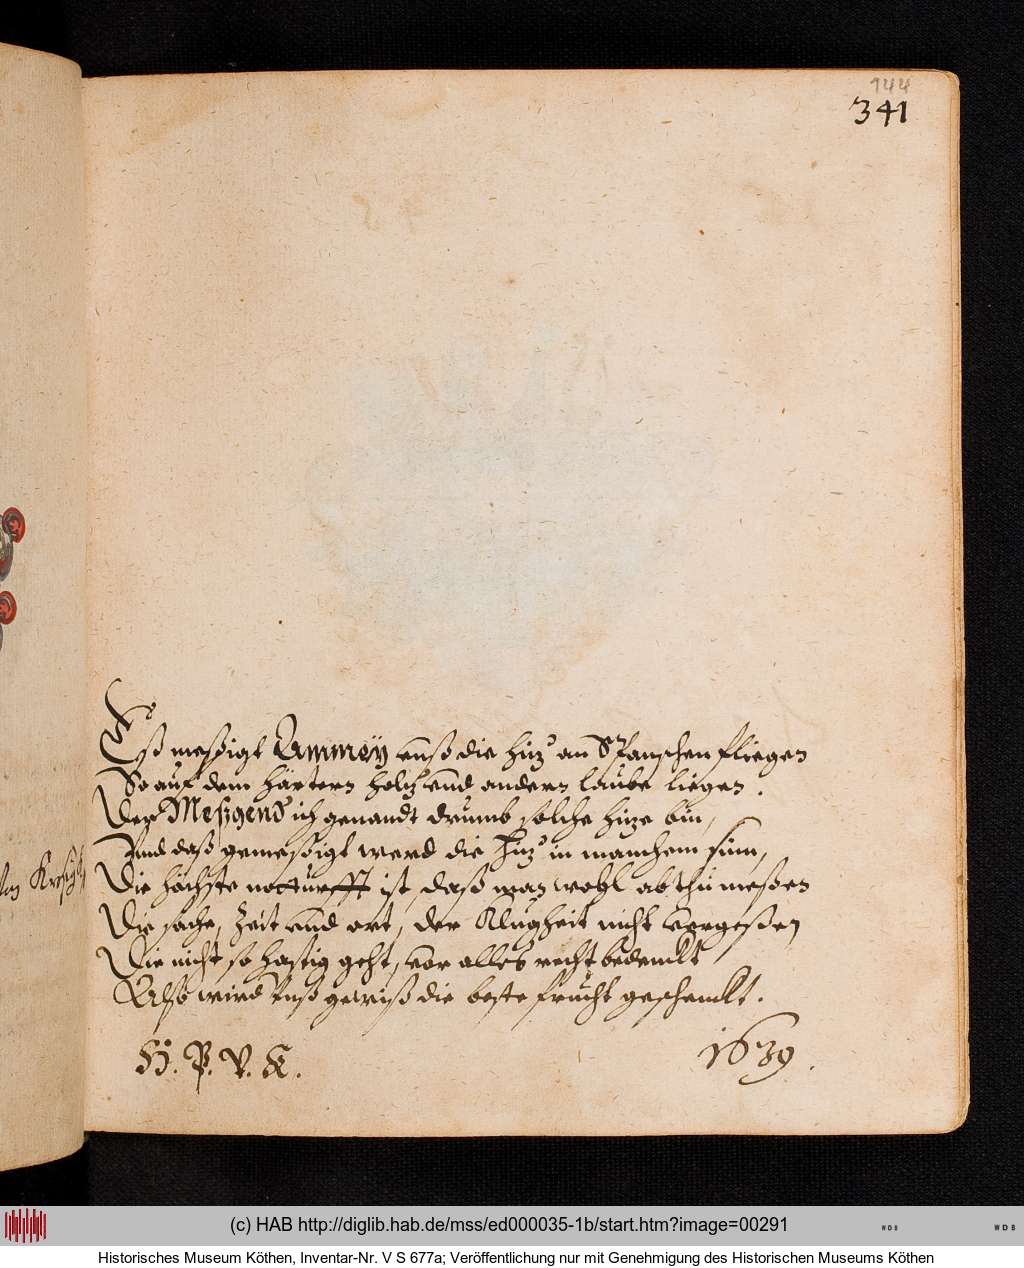 144
341
Eß meßigt Ammeÿ auß die hitz' an Spanschen fliegen
So auf dem härtern holtz' vnd andern laube liegen.
Der Meßgend' ich genandt drumb solche hitze bin,
Vnd daß gemeßigt werd die hitz' in manchem sinn,
Die höchste notturfft ist, daß man wohl abthu meßen
Die sache, Zeit vnd ort, der Klugheit nicht vergeßen
Die nicht so hastig geht, vor alles recht bedenckt
Also wird Vnß gewiß die beste frucht geschenckt.
H. P. V. K.
1639.
von Krosigk
(c) HAB http://diglib.hab.de/mss/ed000035-1b/start.htm?image=00291
WDB
WDB
Historisches Museum Köthen, Inventar-Nr. V S 677a; Veröffentlichung nur mit Genehmigung des Historischen Museums Köthen